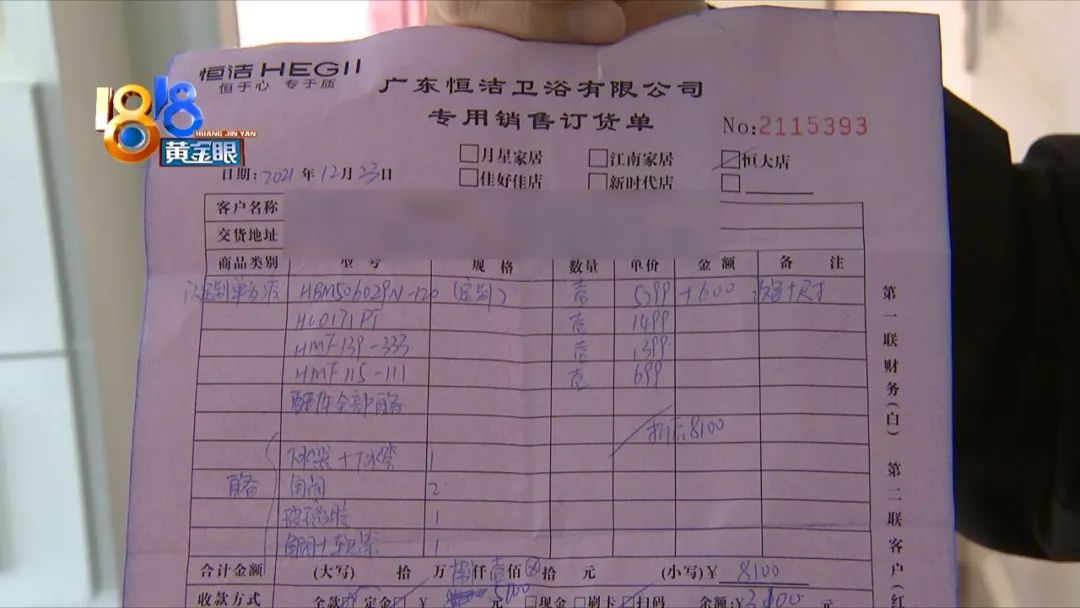 恒洁 HEGII
恒于心 专于质
1818
HUANG JIN YAN
黄金眼
广东恒洁卫浴有限公司
专用销售订货单
No:2115393
日期: 2021 年 12 月 23 日
月星家居 江南家居 恒大店
佳好佳店 新时代店
客户名称
交货地址
商品类别 型号 规格 数量 单价 金额 备注
HBM506029N-120 (定制) 壹 5399 +600
HL0171PT 壹 1499
HMF139-333 壹 1399
HMF115-111 壹 699
配件全部自备
折后8100
下水器+下水管 1
自备 角阀 2
玻璃胶 1
1
合计金额 (大写) 拾 万 捌仟 壹佰 拾 元 (小写)¥ 8100
收款方式 全款 定金 ¥ 5100 元 现金 刷卡 扫码 金额:¥
第一联财务(白) 第二联客户(红